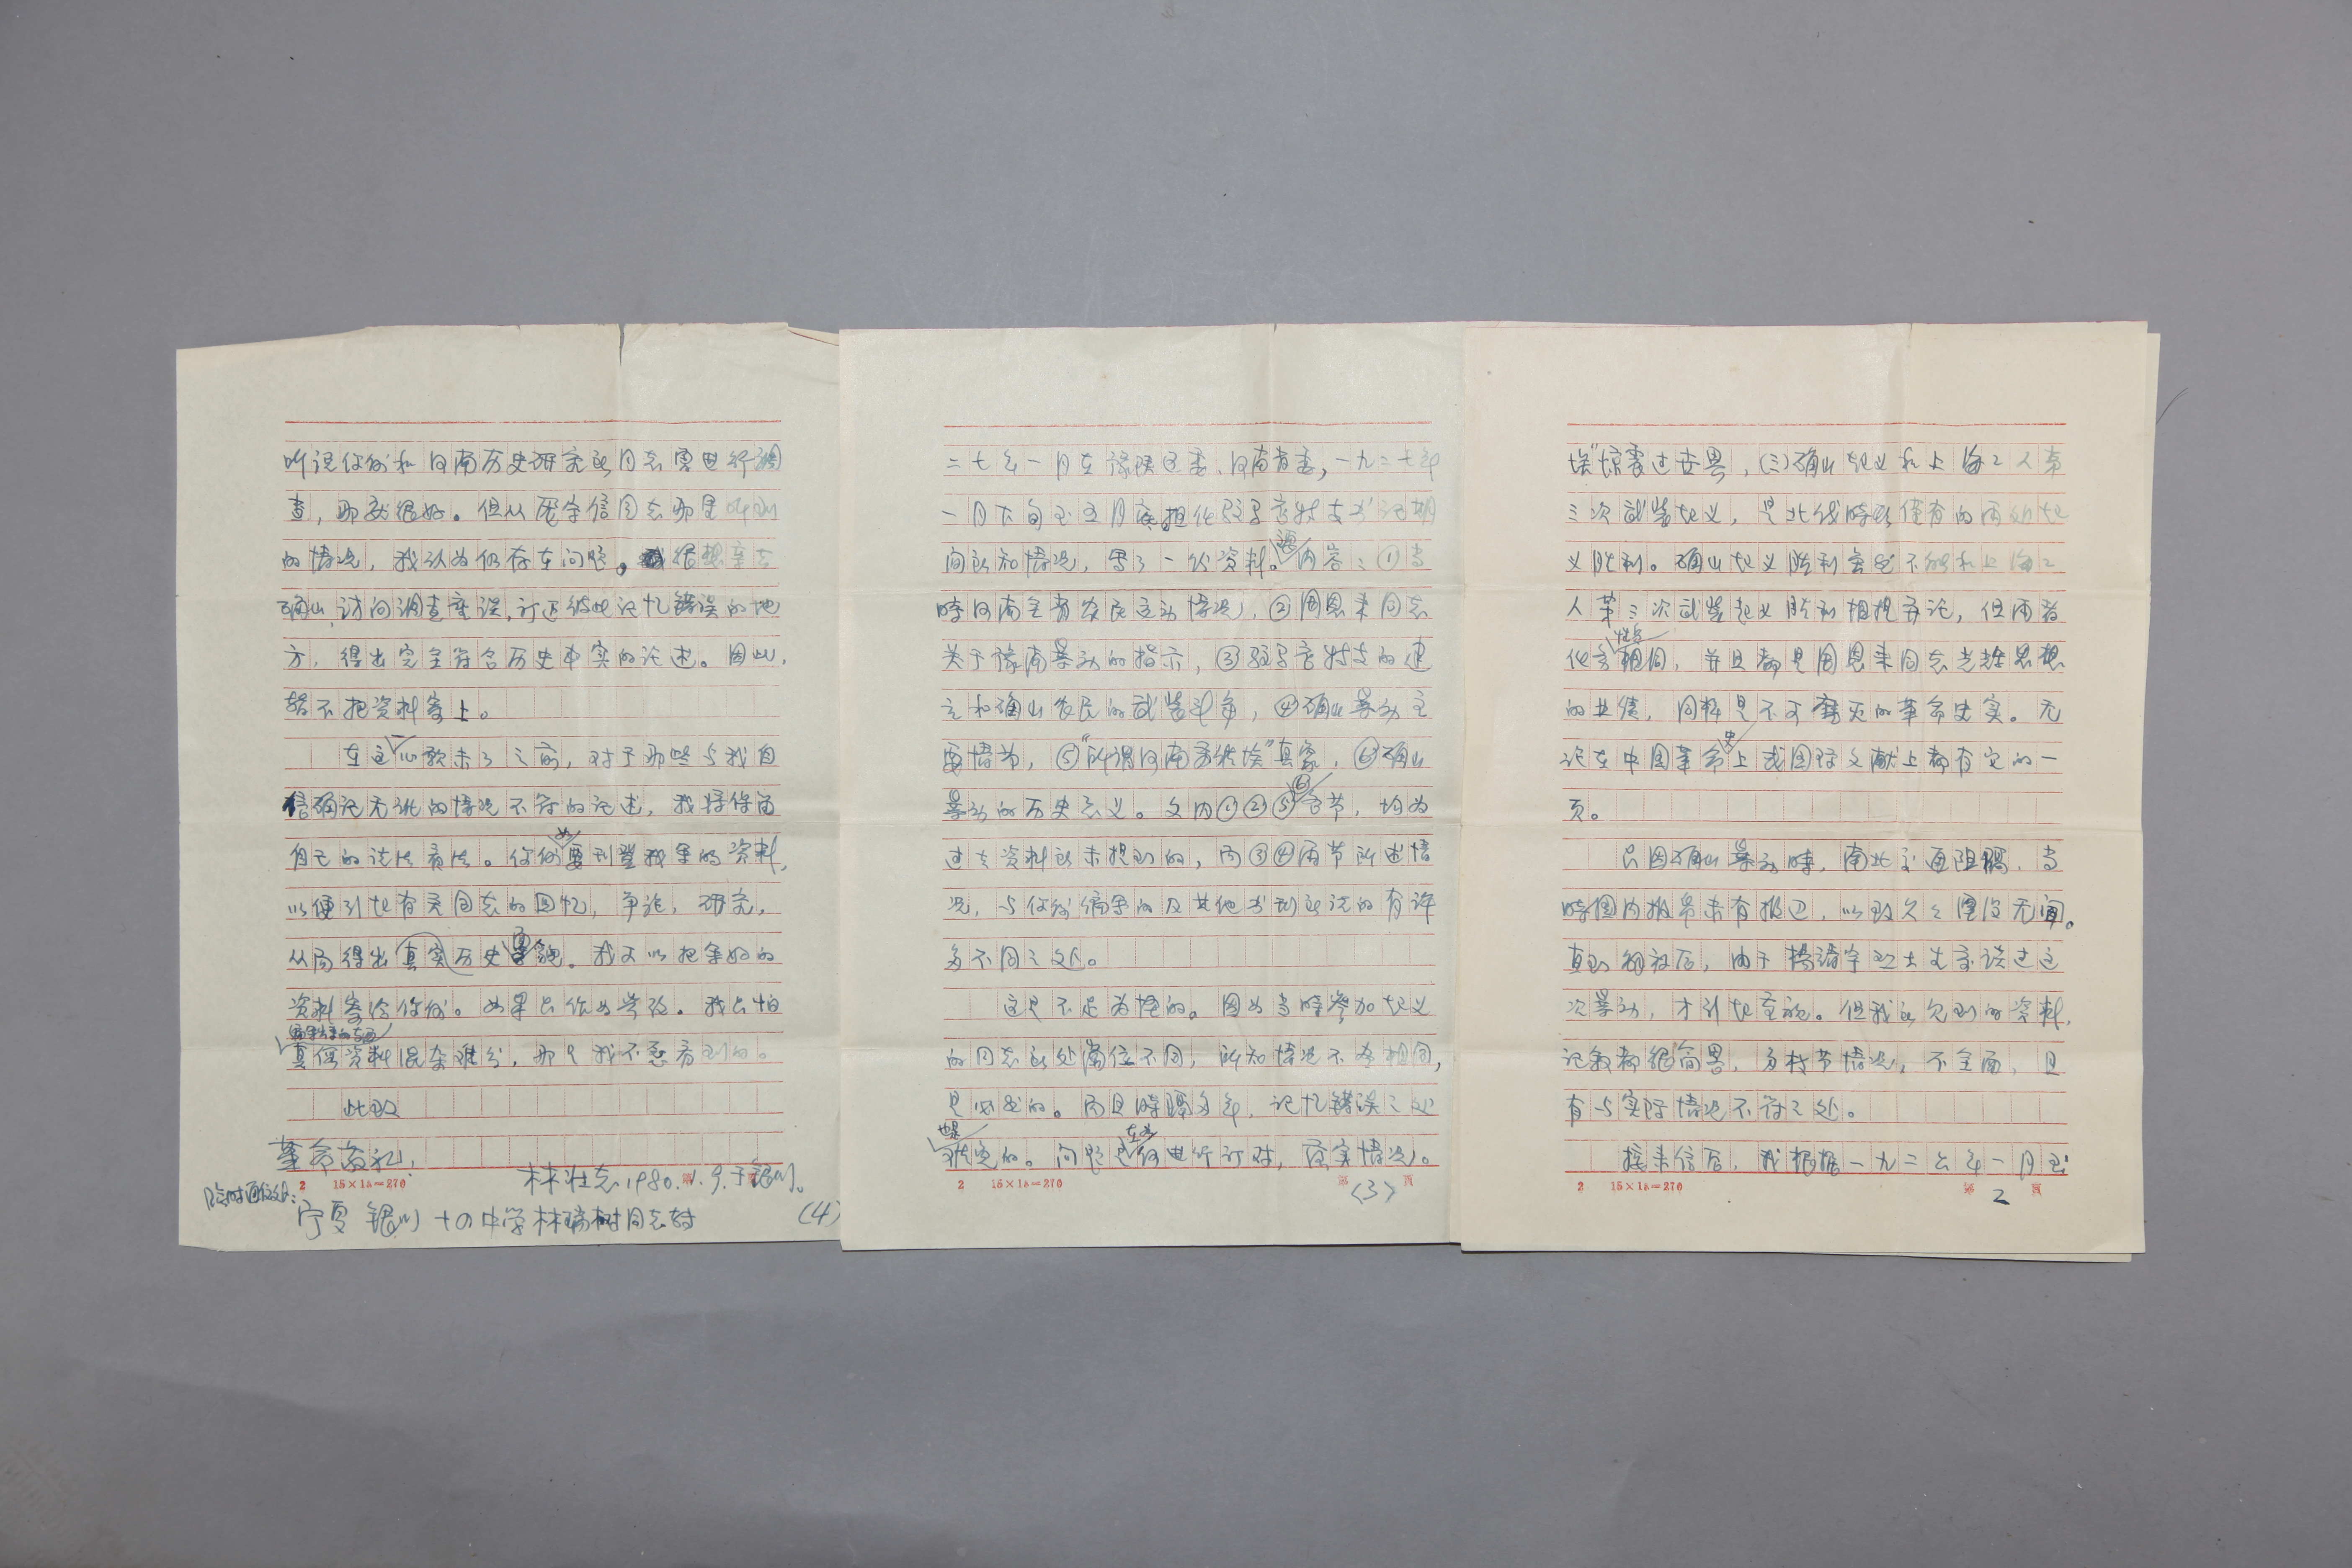 埃”惊震过世界，(三)确山起义和上海工人第
三次武装起义，是北伐时期仅有的两处起
义胜利。确山起义胜利虽然不能和上海工
人第三次武装起义胜利相提并论，但两者
性质相同，并且都是周恩来同志光辉思想
的业绩，同样是不可磨灭的革命史实。无
论在中国革命史上或国际文献上都有它的一
页。
只因确山暴动时，南北交通阻隔，当
时国内报帋未有报道，以致久久湮没无闻。
直到解放后，由于杨靖宇烈士生前谈过这
次暴动，才引起重视。但我所见到的资料，
记叙都很简略，多枝节情况，不全面，且
有与实际情况不符之处。
接来信后，我根据一九二六年一月至
2 15×18=270 第 2 页
二七年一月在豫陕区委、河南省委，一九二七年
一月下旬至五月底担任驻马店特支书记期
间所知情况，写了一份资料。内容：①当
时河南全省农民运动情况，②周恩来同志
关于豫南暴动的指示，③驻马店特支的建
立和确山农民的武装斗争，④确山暴动主
要情节，⑤“所谓河南爱狄埃”真象，⑥确山
暴动的历史意义。文内①②⑤⑥各节，均为
过去资料所未提到的，而③④两节所述情
况，与你们编写的及其他书刊所说的有许
多不同之处。
这是不足为怪的。因为当时参加起义
的同志所处岗位不同，所知情况不尽相同，
是必然的。而且时隔多年，记忆错误之处
也是难免的。问题在于进行订对，落实情况。
2 15×18=270 第 (3) 页
听说你们和河南历史研究所同志要进行调
查，那就很好。但从 字信同志那里听到
的情况，我认为仍存在问题。我很想亲去
确山，访问调查座谈，订正彼此记忆错误的地
方，得出完全符合历史事实的论述。因此，
暂不把资料寄上。
在这一心愿未了之前，对于那些与我自
信确记无讹的情况不符的记述，我将保留
自己的说法看法。你们如要刊登我写的资料，
以便引起有关同志的回忆，争论，研究，
从而得出真实历史面貌。我可以把写好的
资料寄给你们。如果只作为参改。我只怕
编写出来的东西真伪资料混杂难分，那是我不愿看到的。
此致
革命敬礼！
林壮志1980.11.9.于银川。
2 15×18=270
临时通信处：
宁夏 银川 十四中学林瑞树同志转
(4)